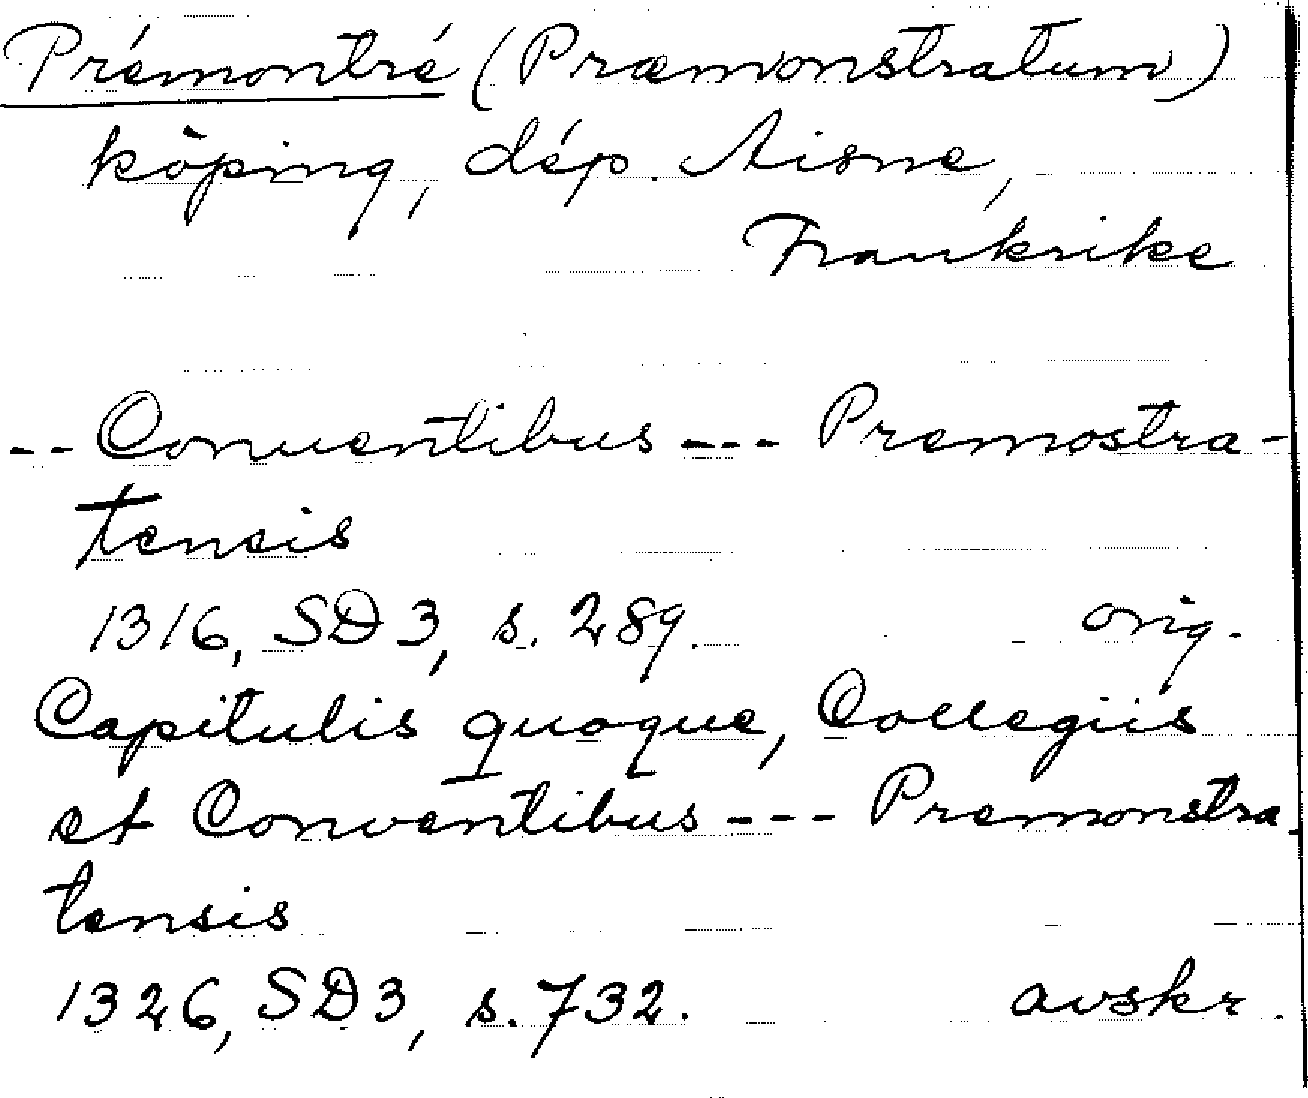 Prémontré (Præmonstratum)
köping, dép. Aisne,
Frankrike
-- Conuentibus --- Premostra-
tensis
1316, SD 3, s. 289. orig.
Capitulis quoque, Collegiis
et Conventibus --- Premonstra-
tensis
1326, SD 3, s. 732. avskr.